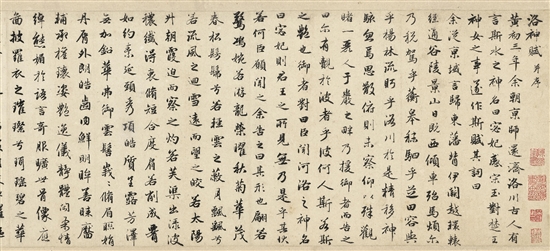 洛神賦 并序
黃初三年余朝京師還濟洛川古人有
言斯水之神名曰宓妃感宋玉對楚王
神女之事遂作斯賦其詞曰
余從京域言歸東藩背伊闕越轘轅
經通谷陵景山日既西傾車殆馬煩爾
迺稅駕乎蘅皋秣駟乎芝田容與
乎楊林流眄乎洛川於是精移神
駭忽焉思散俯則未察仰以殊觀
睹一麗人于巖之畔乃援御者而告之
曰爾有覿於彼者乎彼何人斯若斯
之艷也御者對曰臣聞河洛之神名
曰宓妃則君王之所見無乃是乎其狀
若何臣願聞之余告之曰其形也翩若
驚鴻婉若游龍榮曜秋菊華茂
春松髣髴兮若輕雲之蔽月飄飖兮
若流風之迴雪遠而望之皎若太陽
升朝霞迫而察之灼若芙蕖出淥波
襛纖得衷脩短合度肩若削成腰
如約素延頸秀項皓質呈露芳澤
無加鉛華弗御雲髻峩峩脩眉聯娟
丹脣外朗皓齒內鮮明眸善睞靨
輔承權瓌姿艷逸儀靜體閑柔情
綽態媚於語言奇服曠世骨像應
圖披羅衣之璀璨兮珥瑤碧之華